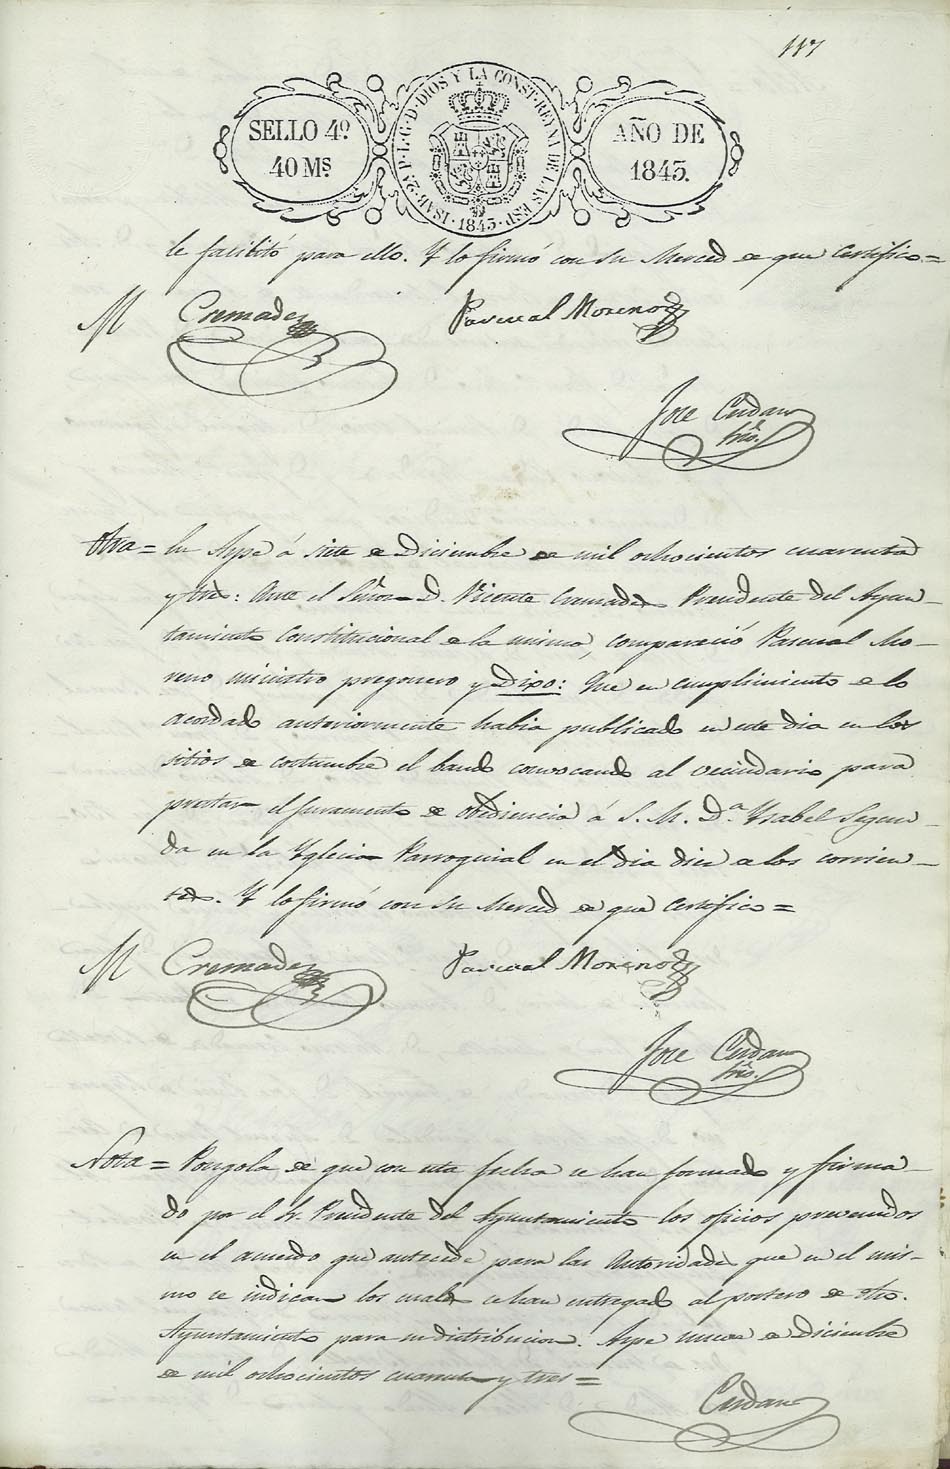 117
SELLO 4º
40 Ms
ISAB. 2ª P. L. G. D. DIOS Y LA CONST. REYNA DE LAS ESP.
1843
AÑO DE
1843.
le facilitó para ello. Y lo firmó con su Merced de que certifico=
M Cremades Pascual Moreno
Jose Cerdan
Srio.
Otra= En Aspe á siete de Diciembre de mil ochocientos cuarenta
y tres: Ante el Señor D. Vicente Cremades Presidente del Ayun-
tamiento Constitucional de la misma, compareció Pascual Mo-
reno ministro pregonero y Dixo: Que en cumplimiento de lo
acordado anteriormente habia publicado en este dia en los
sitios de costumbre el bando convocando al vecindario para
prestar el juramento de obediencia á S. M. D.ª Ysabel Segun-
da en la Yglecia Parroquial en el dia diez de los corrien-
tes. Y lo firmó con su Merced de que certifico=
M Cremades Pascual Moreno
Jose Cerdan
Srio.
Nota= Pongola de que con esta fecha se han formado y firma-
do por el Sr. Presidente del Ayuntamiento los oficios prevenidos
en el acuerdo que antecede para las Autoridades que en el mis-
mo se indican los cuales se han entregado al portero de dho.
Ayuntamiento para su distribucion. Aspe nueve de Diciembre
de mil ochocientos cuarenta y tres=
Cerdan